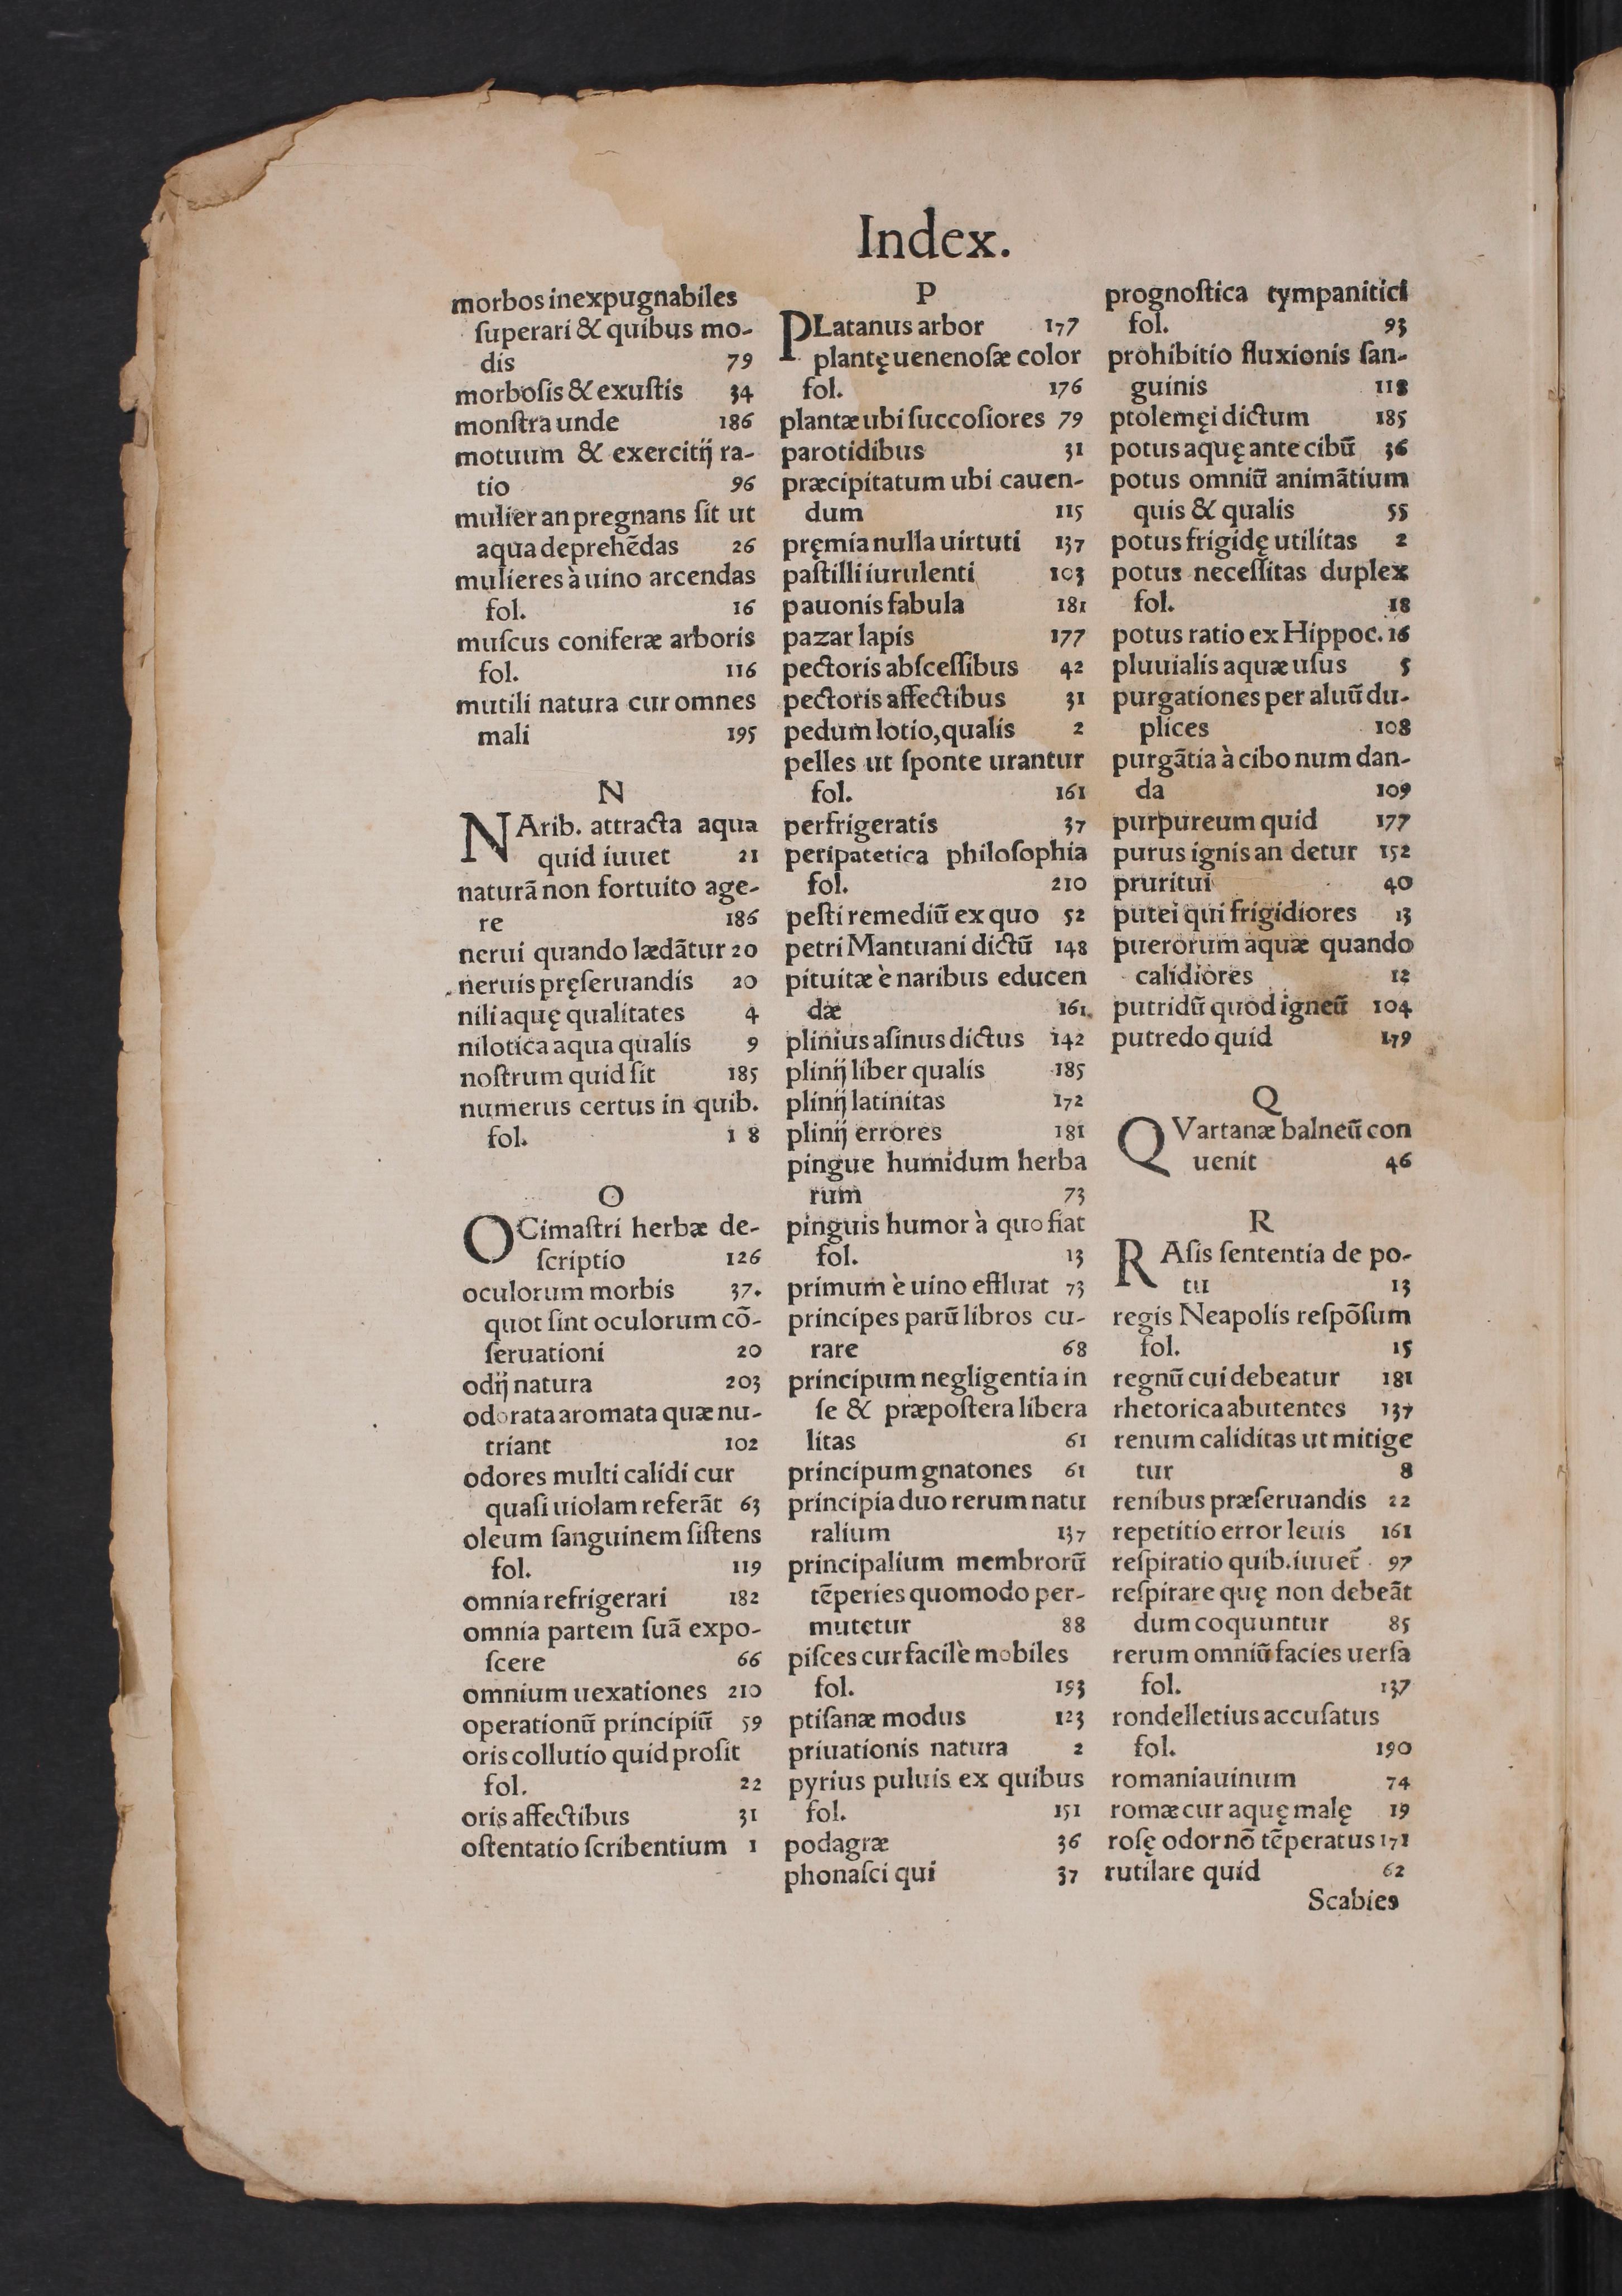 Index.
morbos inexpugnabiles
ſuperari & quibus mo-
dis 79
morboſis & exuſtis 34
monſtra unde 186
motuum & exercitij ra-
tio 96
mulier an pregnans ſit ut
aqua deprehēdas 26
mulieres à uino arcendas
fol. 16
muſcus coniferæ arboris
fol. 116
mutili natura cur omnes
mali 195
N
NArib. attracta aqua
quid iuuet 21
naturā non fortuito age-
re 186
nerui quando lædātur 20
neruis pręſeruandis 20
nili aquę qualitates 4
nilotica aqua qualis 9
noſtrum quid ſit 185
numerus certus in quib.
fol. 1 8
O
OCimaſtri herbæ de-
ſcriptio 126
oculorum morbis 37.
quot ſint oculorum cō-
ſeruationi 20
odij natura 203
odorata aromata quæ nu-
triant 102
odores multi calidi cur
quaſi uiolam referāt 63
oleum ſanguinem ſiſtens
fol. 119
omnia refrigerari 182
omnia partem ſuā expo-
ſcere 66
omnium uexationes 210
operationū principiū 59
oris collutio quid proſit
fol. 22
oris affectibus 31
oſtentatio ſcribentium 1
P
PLatanus arbor 177
plantę uenenoſæ color
fol. 176
plantæ ubi ſuccoſiores 79
parotidibus 31
præcipitatum ubi cauen-
dum 115
pręmia nulla uirtuti 137
paſtilli iurulenti 103
pauonis fabula 181
pazar lapis 177
pectoris abſceſſibus 42
pectoris affectibus 31
pedum lotio, qualis 2
pelles ut ſponte urantur
fol. 161
perfrigeratis 37
peripatetica philoſophia
fol. 210
peſti remediū ex quo 52
petri Mantuani dictū 148
pituitæ è naribus educen
dæ 161.
plinius aſinus dictus 142
plinij liber qualis 185
plinij latinitas 172
plinij errores 181
pingue humidum herba
rum 73
pinguis humor à quo fiat
fol. 13
primum è uino effluat 73
principes parū libros cu-
rare 68
principum negligentia in
ſe & præpoſtera libera
litas 61
principum gnatones 61
principia duo rerum natu
ralium 137
principalium membrorū
tēperies quomodo per-
mutetur 88
piſces cur facilè mobiles
fol. 193
ptiſanæ modus 123
priuationis natura 2
pyrius puluis ex quibus
fol. 151
podagræ 36
phonaſci qui 37
prognoſtica tympanitici
fol. 93
prohibitio fluxionis ſan-
guinis 118
ptolemęi dictum 185
potus aquę ante cibū 36
potus omniū animātium
quis & qualis 55
potus frigidę utilitas 2
potus neceſſitas duplex
fol. 18
potus ratio ex Hippoc. 16
pluuialis aquæ uſus 5
purgationes per aluū du-
plices 108
purgātia à cibo num dan-
da 109
purpureum quid 177
purus ignis an detur 152
pruritui 40
putei qui frigidiores 13
puerorum aquæ quando
calidiores 12
putridū quod igneū 104
putredo quid 179
Q
QVartanæ balneū con
uenit 46
R
RAſis ſententia de po-
tu 13
regis Neapolis reſpōſum
fol. 15
regnū cui debeatur 181
rhetorica abutentes 137
renum caliditas ut mitige
tur 8
renibus præſeruandis 22
repetitio error leuis 161
reſpiratio quib. iuuet. 97
reſpirare quę non debeāt
dum coquuntur 85
rerum omniū facies uerſa
fol. 137
rondelletius accuſatus
fol. 190
romania uinum 74
romæ cur aquę malę 19
roſę odor nō tēperatus 171
rutilare quid 62
Scabies